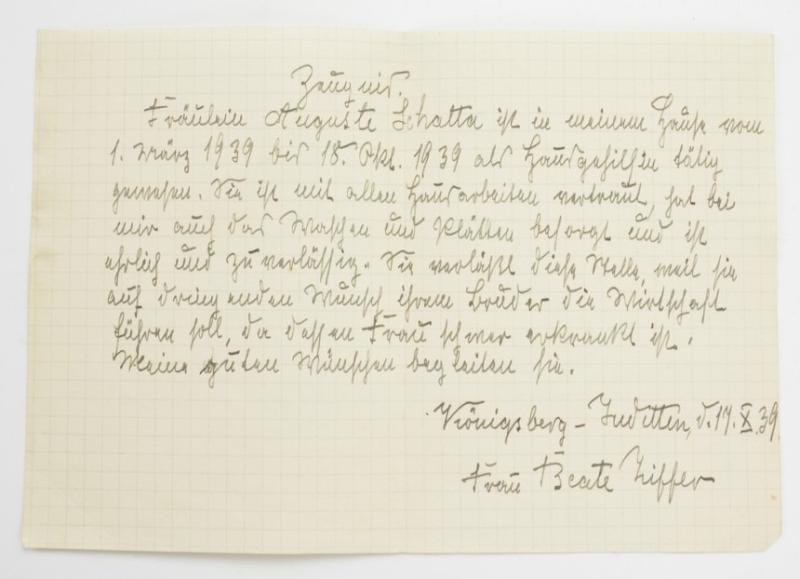 Zeugnis.
Fräulein Auguste Schatta ist in meinem Hause vom
1. März 1939 bis 18. Okt. 1939 als Hausgehilfin tätig
gewesen. Sie ist mit allen Hausarbeiten vertraut, hat bei
mir auch das Waschen und Plätten besorgt und ist
ehrlich und zuverlässig. Sie verläßt diese Stelle, weil sie
auf dringenden Wunsch ihrem Bruder die Wirtschaft
führen soll, da dessen Frau schwer erkrankt ist.
Meine guten Wünschen begleiten sie.
Königsberg – Juditten, d. 17. X. 39
Frau Beate Ziffer